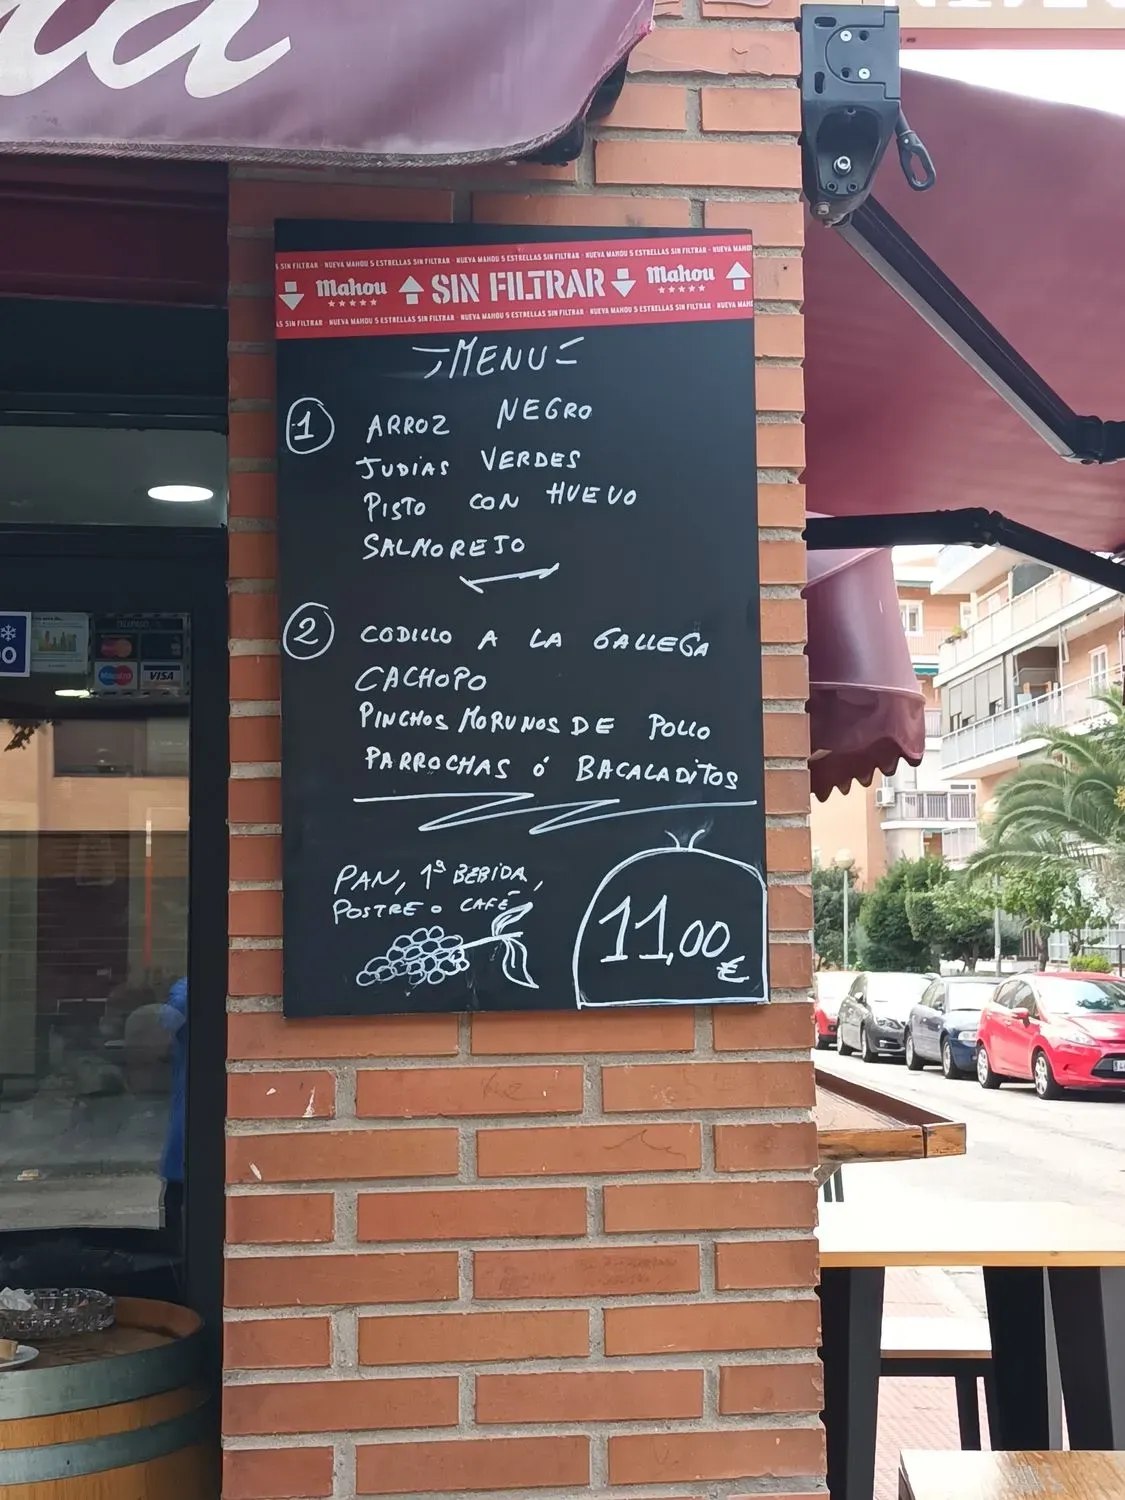 NUEVA MAHOU 5 ESTRELLAS SIN FILTRAR · NUEVA MAHOU 5 ESTRELLAS SIN FILTRAR · NUEVA MAHOU 5 ESTRELLAS SIN FILTRAR
Mahou SIN FILTRAR Mahou
NUEVA MAHOU 5 ESTRELLAS SIN FILTRAR · NUEVA MAHOU 5 ESTRELLAS SIN FILTRAR · NUEVA MAHOU 5 ESTRELLAS SIN FILTRAR
MENU
1 ARROZ NEGRO
JUDIAS VERDES
PISTO CON HUEVO
SALMOREJO
2 CODILLO A LA GALLEGA
CACHOPO
PINCHOS MORUNOS DE POLLO
PARROCHAS ó BACALADITOS
PAN, 1ª BEBIDA,
POSTRE o CAFÉ
11,00 €
VISA